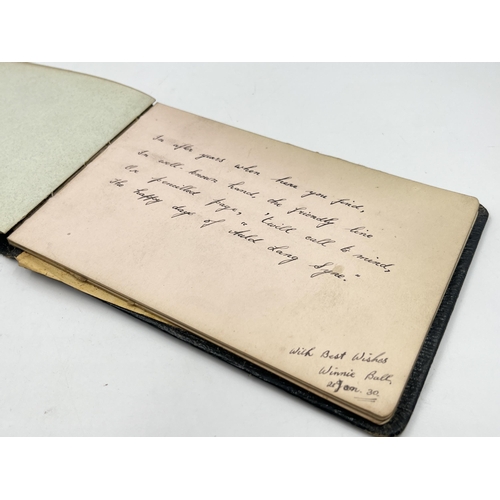 In after years when here you find,
In well-known hand, the friendly line
On pencilled page, 'twill call to mind,
The happy days of "Auld Lang Syne."
With Best Wishes
Winnie Ball,
Jan. 30